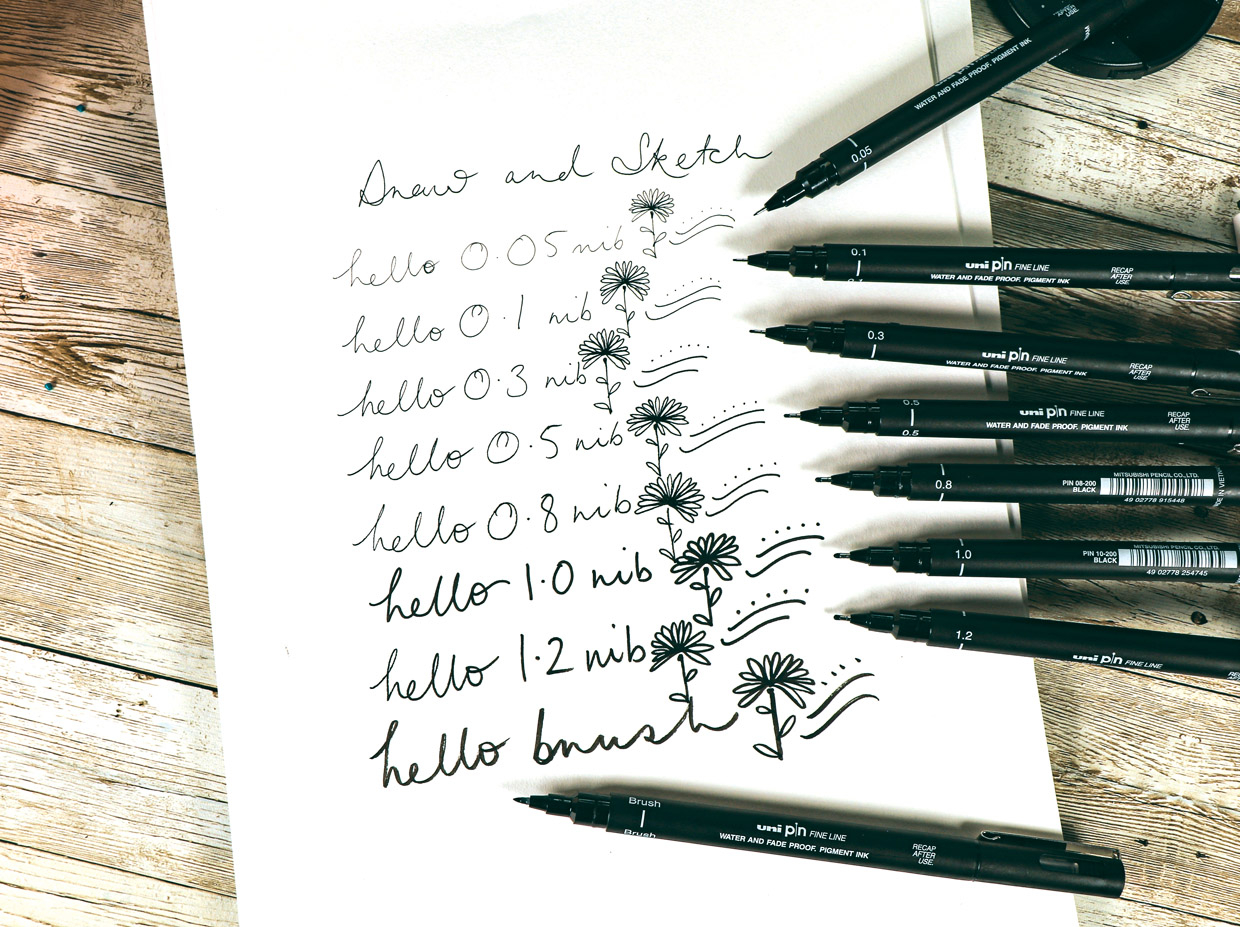 Draw and Sketch
hello 0.05 nib
hello 0.1 nib
hello 0.3 nib
hello 0.5 nib
hello 0.8 nib
hello 1.0 nib
hello 1.2 nib
hello brush
RECAP AFTER USE
WATER AND FADE PROOF. PIGMENT INK
0.05
0.1
uni pin FINE LINE
WATER AND FADE PROOF. PIGMENT INK
RECAP
AFTER
USE.
0.1
0.3
uni pin FINE LINE
WATER AND FADE PROOF. PIGMENT INK
RECAP
AFTER
USE
0.5
0.5
uni pin FINE LINE
WATER AND FADE PROOF. PIGMENT INK
RECAP
AFTER
USE.
0.8
PIN 08-200
BLACK
MITSUBISHI PENCIL CO., LTD.
49 02778 915448
1.0
PIN 10-200
BLACK
MITSUBISHI PENCIL CO., LTD.
49 02778 254745
1.2
uni pin FINE LINE
Brush
Brush
uni pin FINE LINE
WATER AND FADE PROOF. PIGMENT INK
RECAP
AFTER
USE.